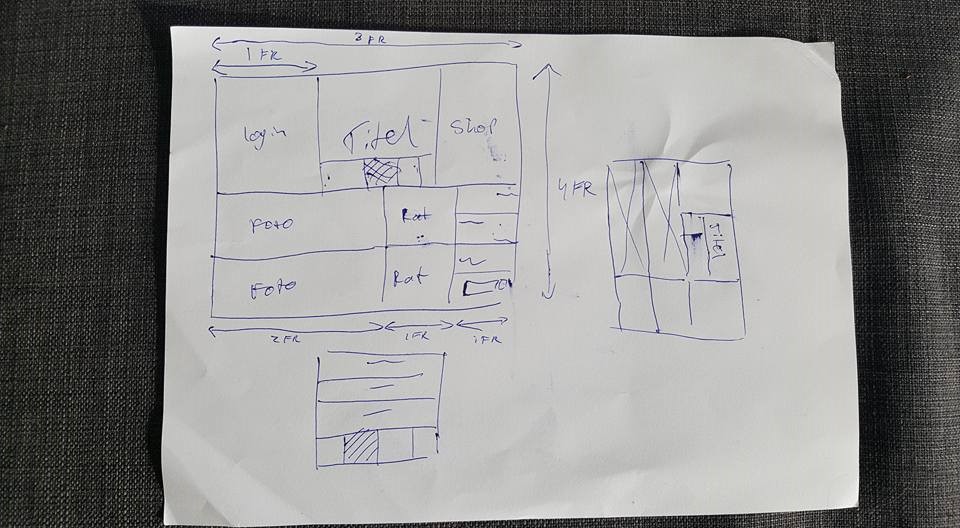 3 FR
1 FR
login
Titel
Shop
4 FR
Foto
Rat
Foto
Rat
2 FR
1 FR
1 FR
Titel